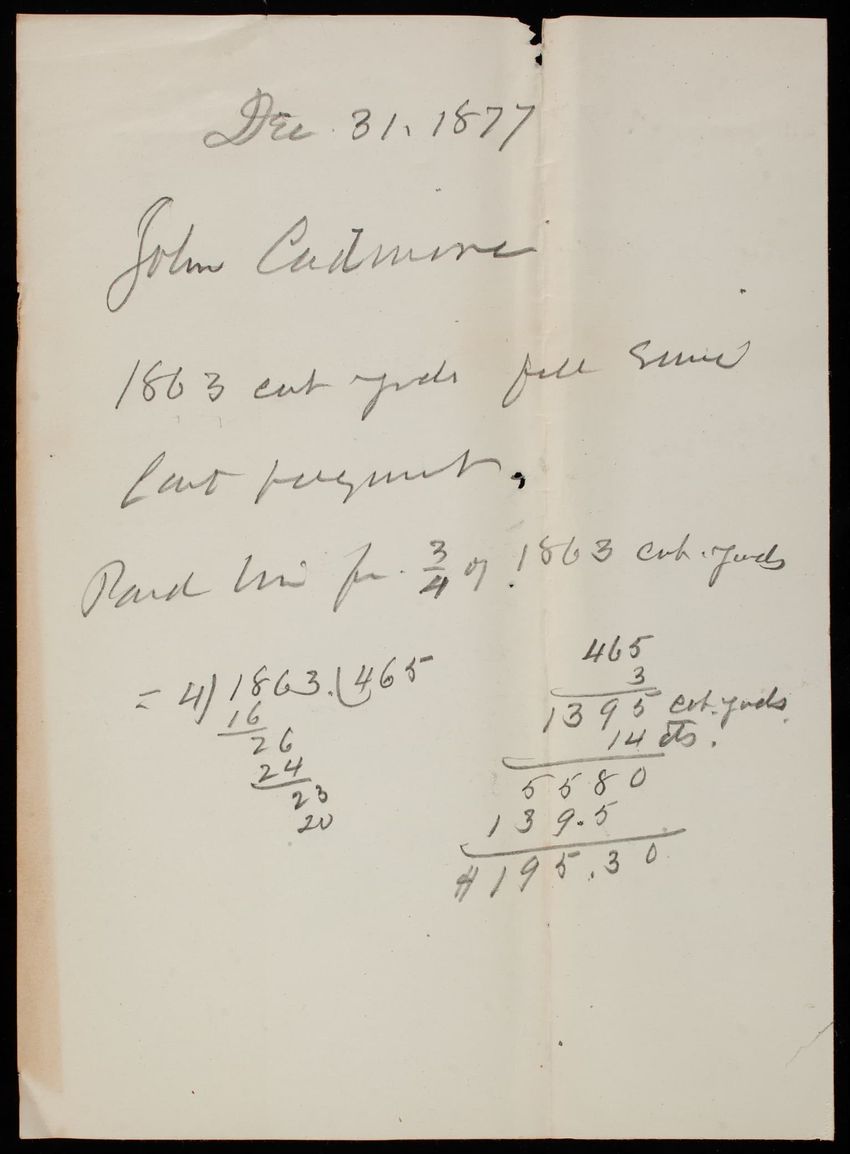 Dec. 31. 1877
John Cudmore
1863 cub yards fill since
last payment.
Paid him for 3/4 of 1863 cub. yards
= 4) 1863. (465
16
26
24
23
20
465
3
1395 cub. yards.
14 cts.
5580
139.5
$195.30